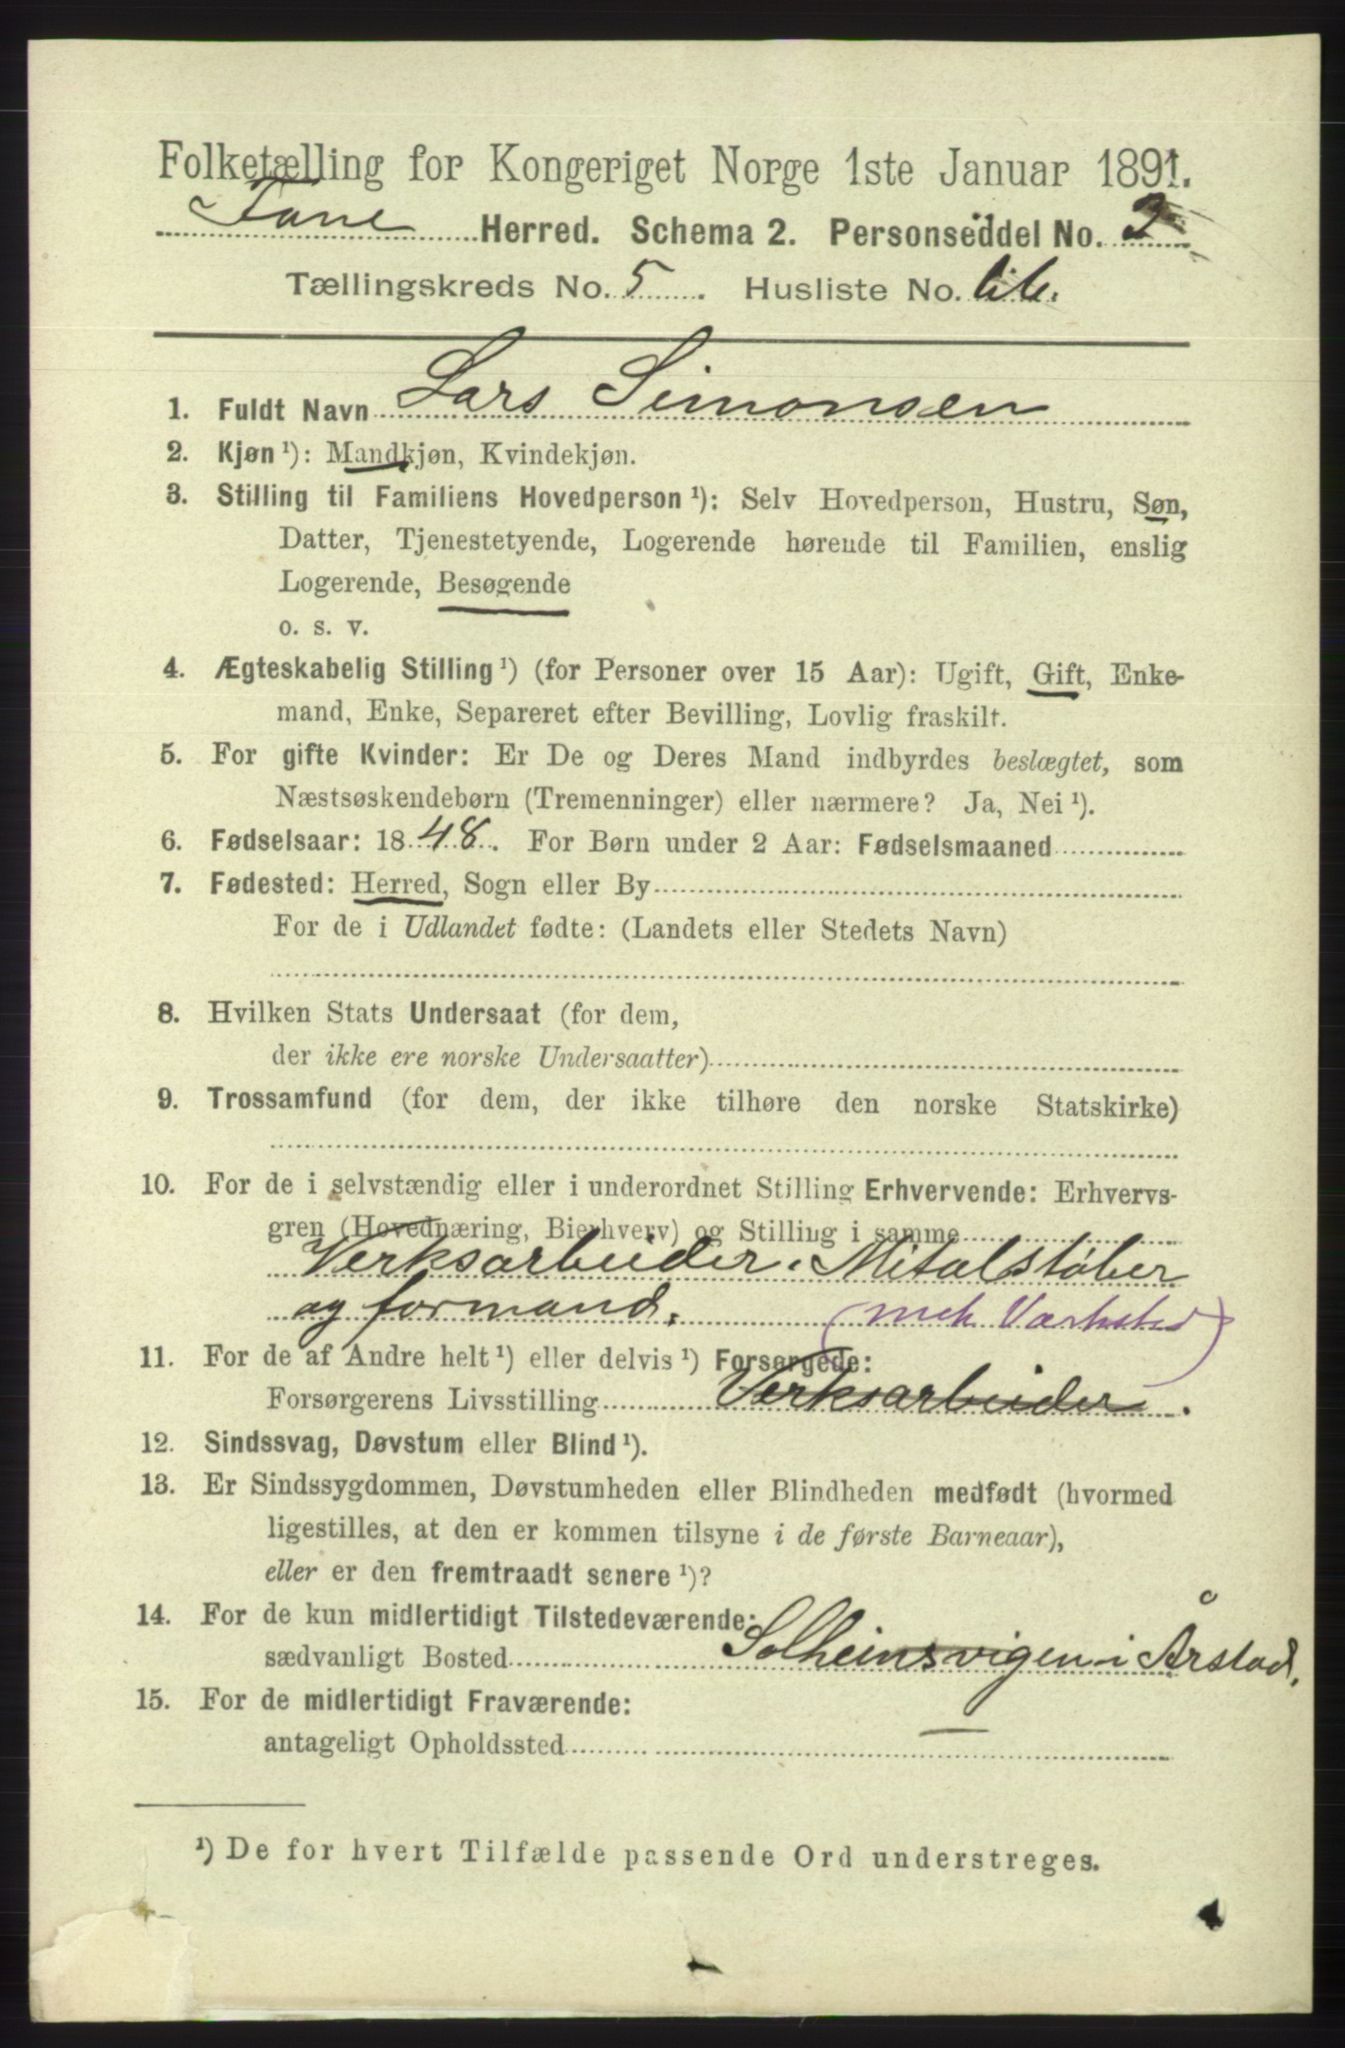 Folketælling for Kongeriget Norge 1ste Januar 1891.
Fane Herred. Schema 2. Personseddel No. 2
Tællingskreds No. 5. Husliste No.
1. Fuldt Navn Lars Simonsen
2. Kjøn ¹): Mandkjøn, Kvindekjøn.
3. Stilling til Familiens Hovedperson ¹): Selv Hovedperson, Hustru, Søn,
Datter, Tjenestetyende, Logerende hørende til Familien, enslig
Logerende, Besøgende
o. s. v.
4. Ægteskabelig Stilling ¹) (for Personer over 15 Aar): Ugift, Gift, Enke-
mand, Enke, Separeret efter Bevilling, Lovlig fraskilt.
5. For gifte Kvinder: Er De og Deres Mand indbyrdes beslægtet, som
Næstsøskendebørn (Tremenninger) eller nærmere? Ja, Nei ¹).
6. Fødselsaar: 1848. For Børn under 2 Aar: Fødselsmaaned
7. Fødested: Herred, Sogn eller By
For de i Udlandet fødte: (Landets eller Stedets Navn)
8. Hvilken Stats Undersaat (for dem,
der ikke ere norske Undersaatter)
9. Trossamfund (for dem, der ikke tilhøre den norske Statskirke)
10. For de i selvstændig eller i underordnet Stilling Erhvervende: Erhvervs-
gren (Hovednæring, Bierhverv) og Stilling i samme
Verksarbeider. Mitalstøber
og formand. (mek Værksted)
11. For de af Andre helt ¹) eller delvis ¹) Forsørgede:
Forsørgerens Livsstilling Verksarbeider.
12. Sindssvag, Døvstum eller Blind ¹).
13. Er Sindssygdommen, Døvstumheden eller Blindheden medfødt (hvormed
ligestilles, at den er kommen tilsyne i de første Barneaar),
eller er den fremtraadt senere ¹)?
14. For de kun midlertidigt Tilstedeværende:
sædvanligt Bosted Solheimsvigen i Årstad.
15. For de midlertidigt Fraværende:
antageligt Opholdssted —
¹) De for hvert Tilfælde passende Ord understreges.